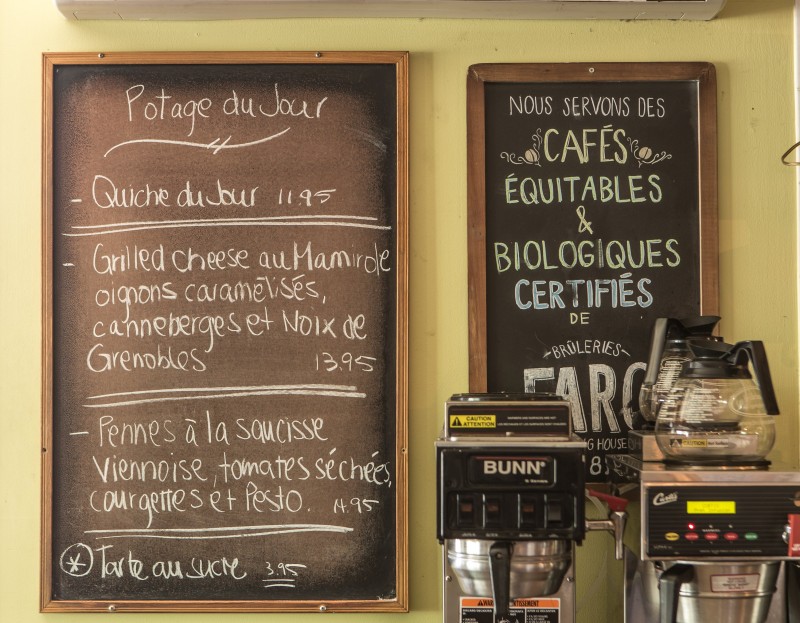 Potage du Jour
- Quiche du Jour 11.95
- Grilled cheese au Mamirole
oignons caramélisés,
canneberges et Noix de
Grenobles 13.95
- Pennes à la saucisse
Viennoise, tomates séchées,
courgettes et Pesto. 14.95
* Tarte au sucre 3.95
NOUS SERVONS DES
CAFÉS
ÉQUITABLES
&
BIOLOGIQUES
CERTIFIÉS
DE
-BRÛLERIES-
FARO
HOUSE
CAUTION
ATTENTION
BUNN
Curtis
CAUTION
WARNING